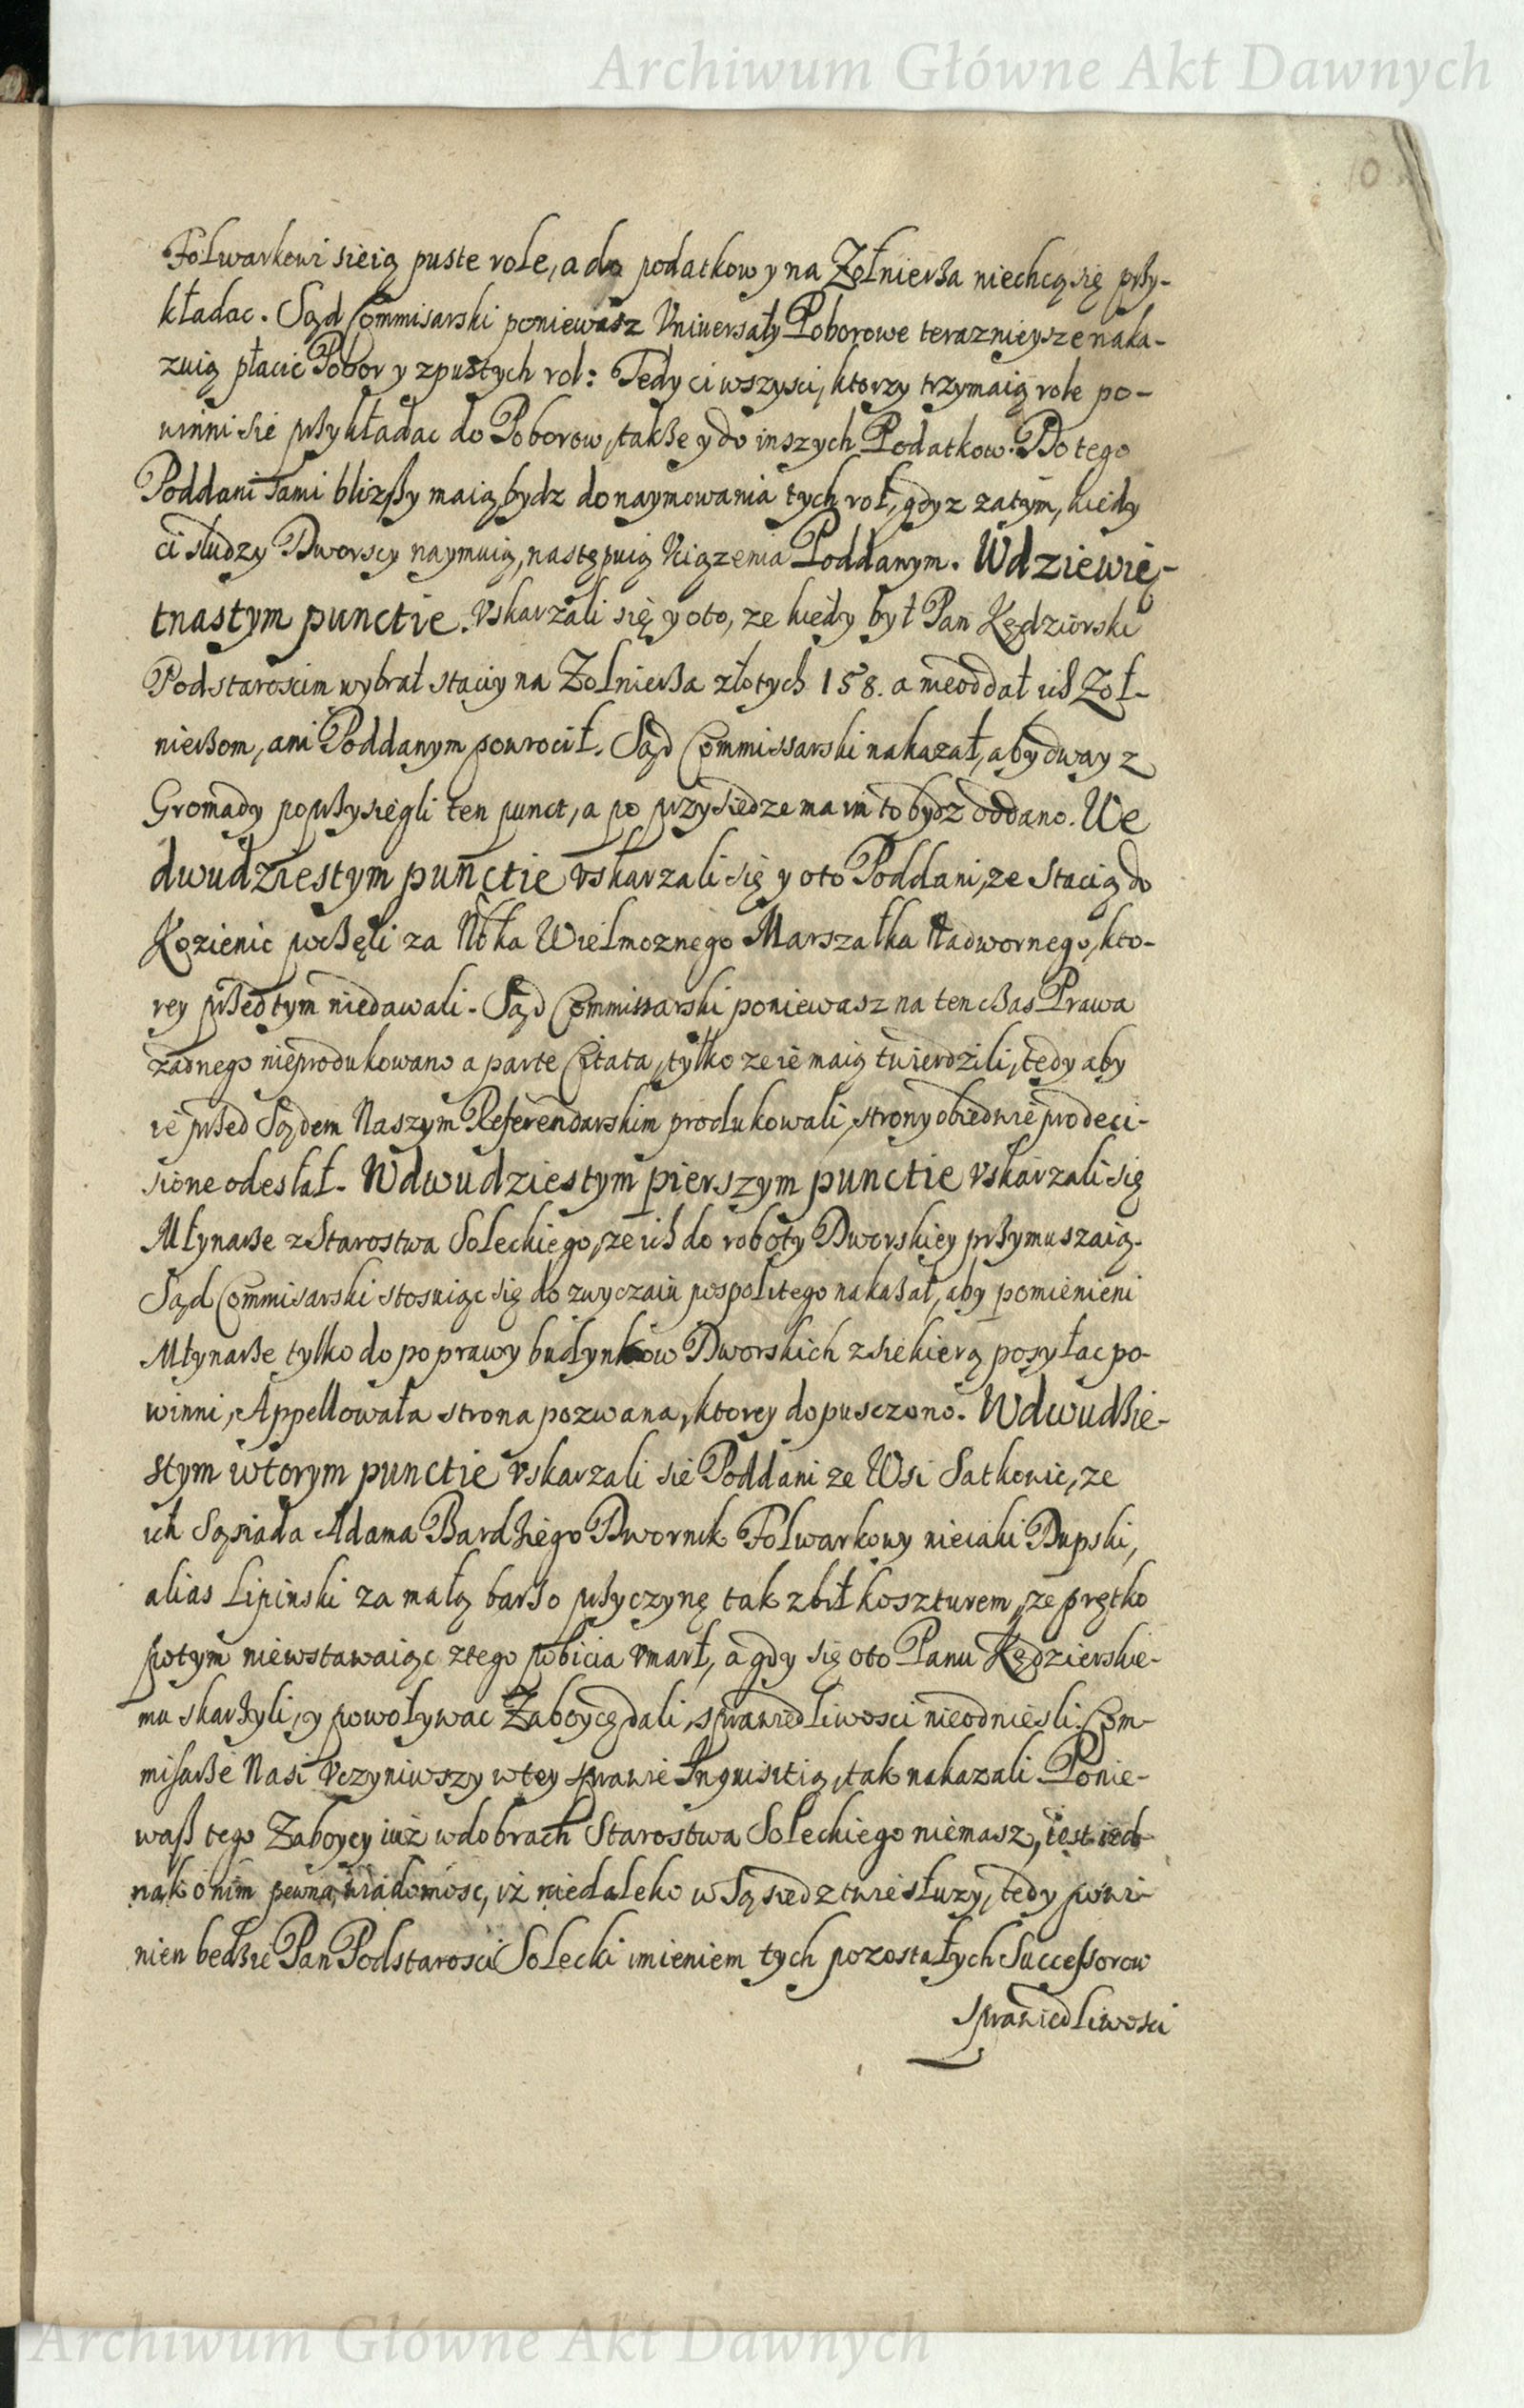 Archiwum Główne Akt Dawnych
10
Folwarkowi sieią puste role, a do podatkow y na Żołnierza niechcą się przy-
kładac. Sąd Commisarski poniewasz Vniuersały Poborowe terazniejsze naka-
zuią płacić Pobory z pustych rol: Tedy ci wszysci, ktorzy trzymaią role po-
winni sie przykładac do Poborow, także y do inszych Podatkow. Do tego
Poddani sami blizszy maią bydz do naymowania tych rol, gdyz zatym, kiedy
ci słudzy Dworscy naymuią, następuią Vciązenia Poddanym. W dziewię-
tnastym punctie. Vskarzali się y oto, ze kiedy był Pan Kędzierski
Podstaroscim wybrał staciy na Zołnierza złotych 158. a nieoddał ich Zoł-
nierzom, ani Poddanym powrocił. Sąd Commissarski nakazał, aby dway z
Gromady poprzysięgli ten punct, a po przysiedze ma im to bydz oddano. We
dwudziestym punctie vskarzali się y oto Poddani, ze Stacią do
Kozienic poczęli za Nbka Wielmoznego Marszałka Nadwornego, kto-
rey przed tym niedawali. Sąd Commissarski poniewasz na ten czas Prawa
zadnego nieprodukowano a parte Citata, tylko ze ie maią twierdzili, tedy aby
ie przed Sądem Naszym Referendarskim produkowali, strony obiedwie pro deci-
sione odesłał. W dwudziestym pierszym punctie vskarzali się
Młynarze z Starostwa Soleckiego, ze ich do roboty Dworskiey przymuszaią.
Sąd Commisarski stosuiąc się do zwyczaiu pospolitego nakazał, aby pomienieni
Młynarze tylko do poprawy budynkow Dworskich z siekierą posyłac po-
winni, Appellowała strona pozwana, ktorey dopusczono. W dwudzie-
stym wtorym punctie vskarzali sie Poddani ze Wsi Satkowic, ze
ich Sąsiada Adama Bardziego Dwornik Folwarkowy nieiaki Dupski,
alias Lipinski za małą barzo przyczynę tak zbił koszturem, ze prętko
potym niewstawaiąc z tego pobicia vmarł, a gdy się oto Panu Kędzierskie-
mu skarżyli, y powoływac Zaboycę dali, sprawiedliwosci nieodniesli. Com-
misarze Nasi vczyniwszy w tey sprawie Inquisitią, tak nakazali. Ponie-
wasz tego Zaboycy iuż w dobrach Starostwa Soleckiego niemasz, iest ied-
nak o nim pewna wiadomosc, iż niedaleko w Sąsiedztwie słuzy, tedy powi-
nien bedzie Pan Podstarosci Solecki imieniem tych pozostałych Successorow
sprawiedliwosci
Archiwum Główne Akt Dawnych